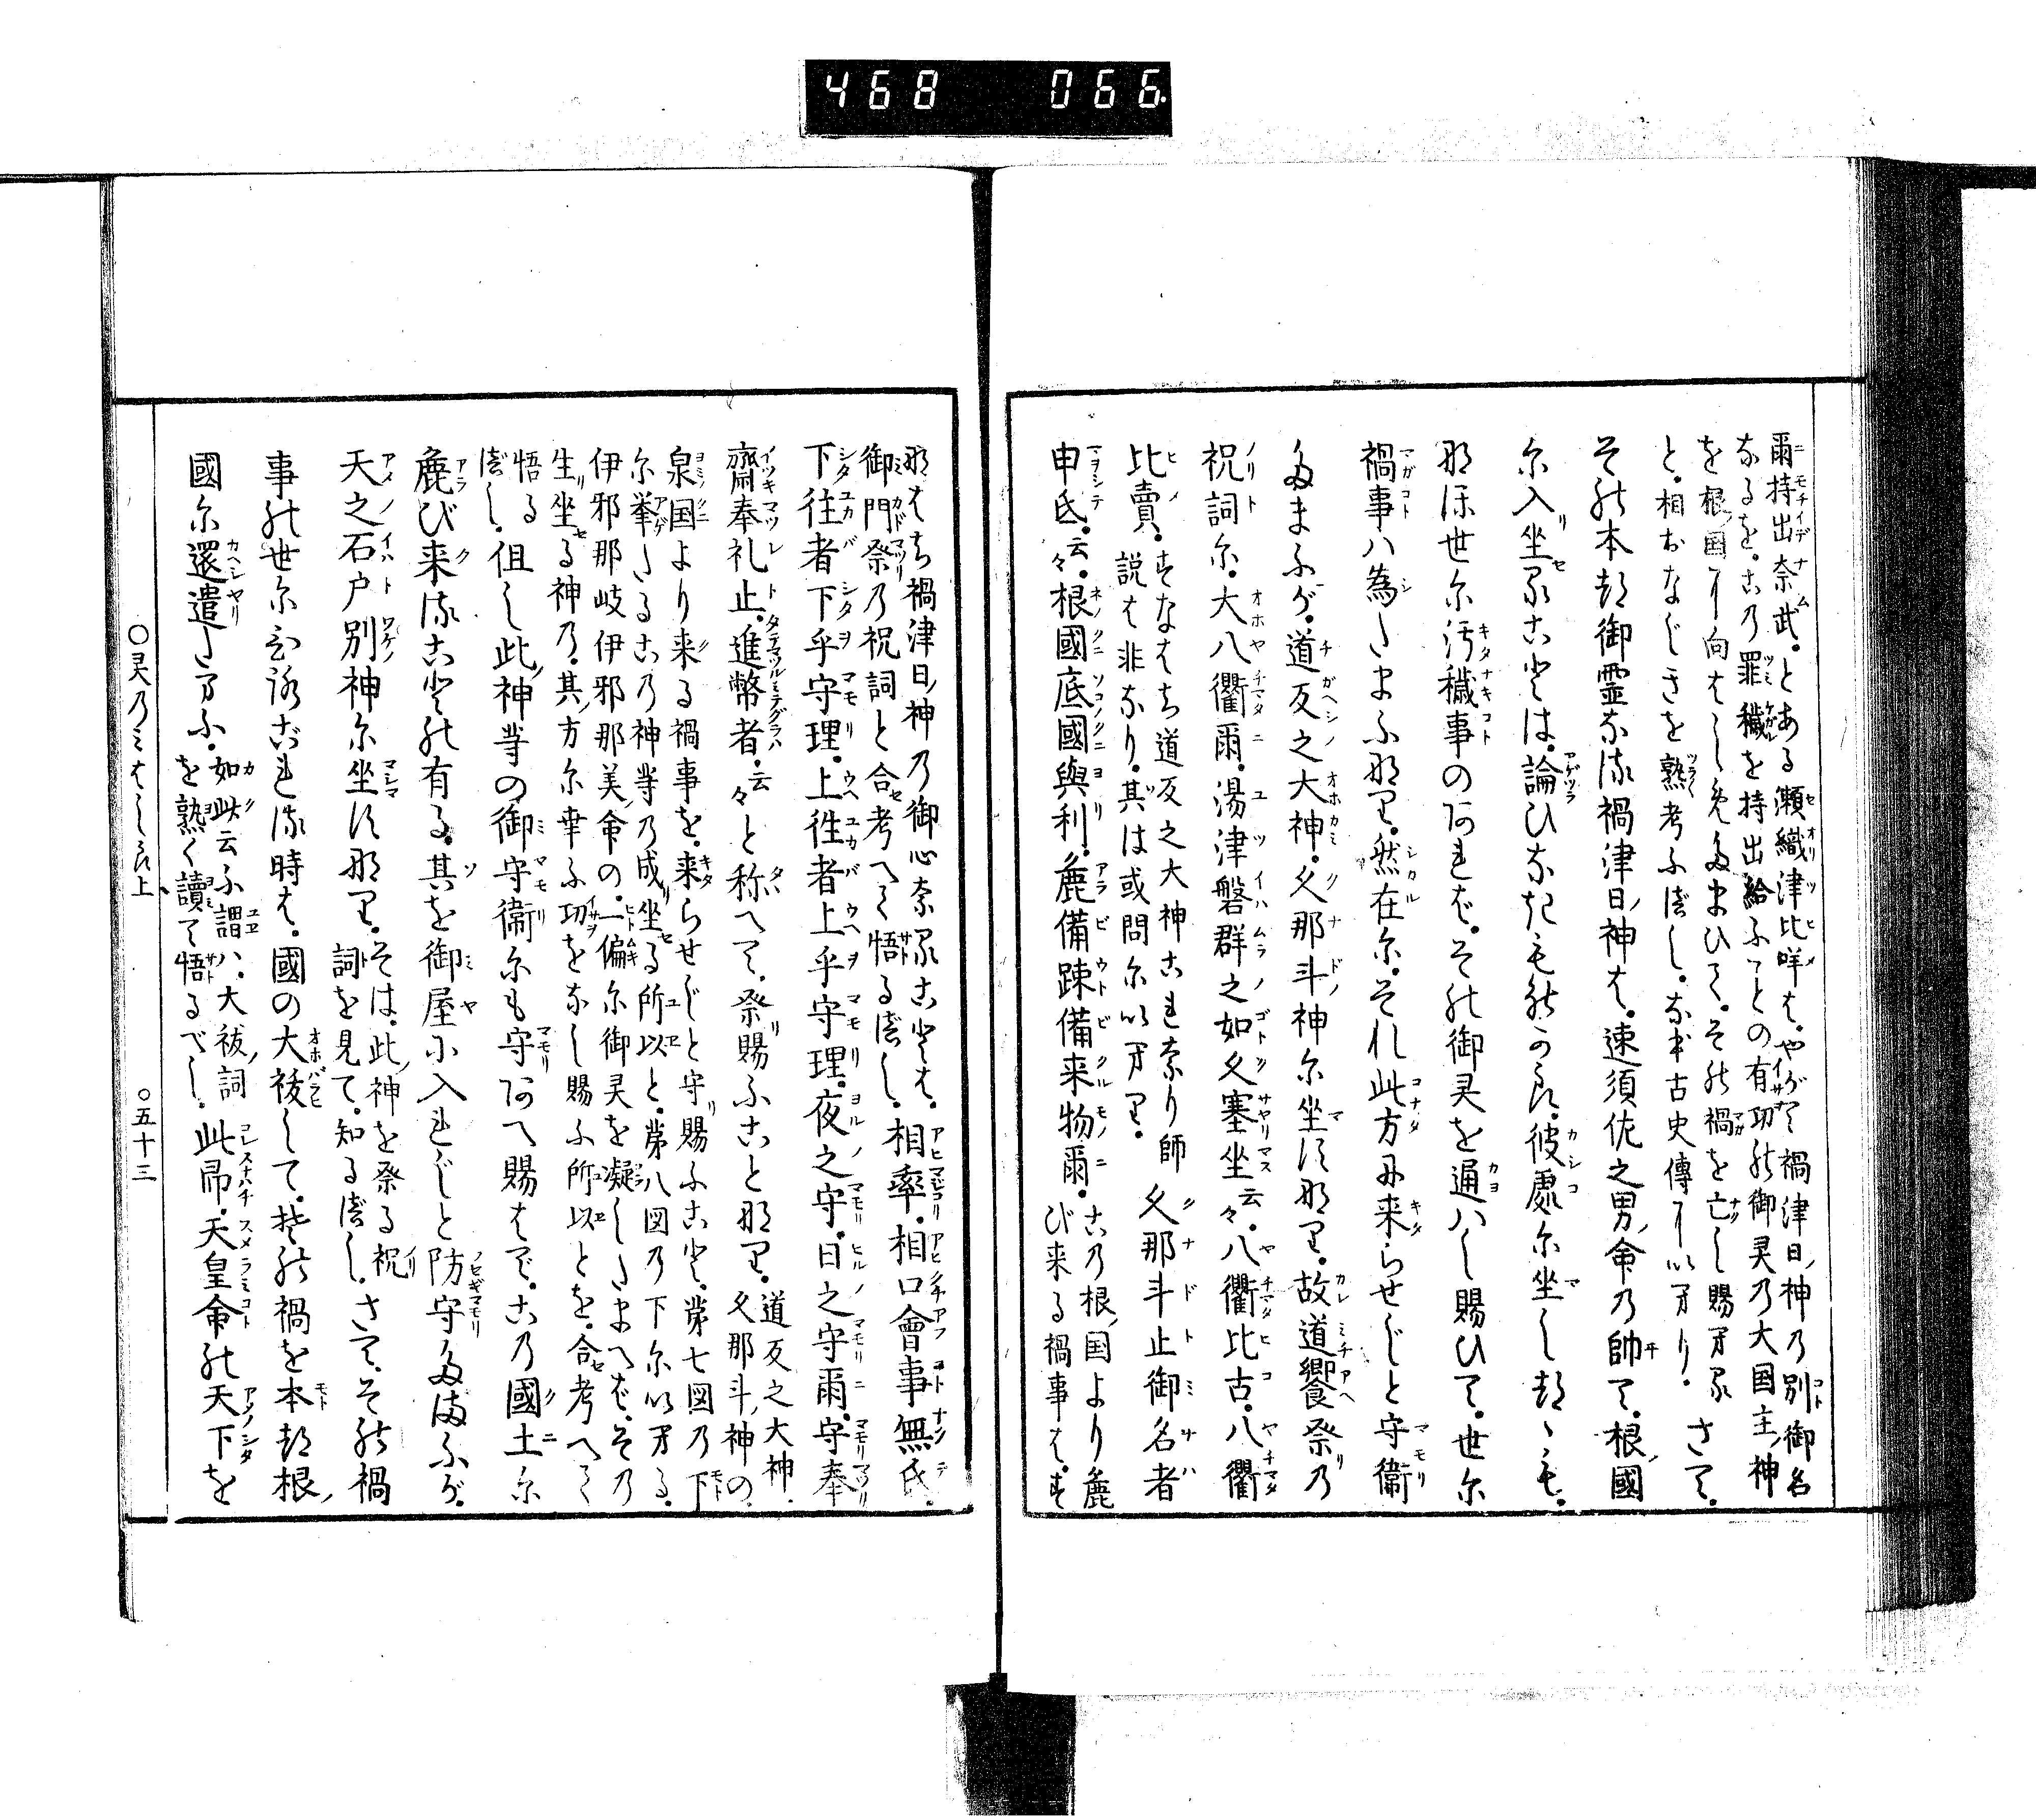 468 066
爾持出奈武。とある瀬織津比咩は。やがて禍津日ノ神乃別御名
なるを。此の罪穢を持出給ふことの有功能御灵乃大国主ノ神
を根ノ国に向はし免たまひて。その禍を亡し賜へる
と。相おなじきを熟考ふべし。なほ古史傳に以へり。さて。
その本つ御霊なる禍津日ノ神は。速須佐之男ノ命乃帥て。根ノ國
尓入坐ること は。論ひなきものから。彼處尓坐しつゝも。
なほ世尓汚穢事のあれば。その御灵を通ハし賜ひて。世尓
禍事ハ為たまふなり。然在尓。それ此方に来らせじと守衛
たまふが。道反之大神。久那斗神尓坐すなり。故道饗祭乃
祝詞尓。大八衢爾。湯津磐群之如久塞坐云々。八衢比古。八衢
比賣。すなはち道反之大神これなり師説は非なり。其は或問尓以へり。久那斗止御名者
申氐。云々。根國底國與利。麁備疎備来物爾。この根ノ国より麁び来る禍事は。す
なはち禍津日ノ神乃御心なることは。
御門祭乃祝詞と合考へて悟るべし。相率。相口會事無氐。
下往者下乎守理。上往者上乎守理。夜之守。日之守爾。守奉
齋奉礼止。進幣者。云々と称へて。祭賜ふことなり。道反之大神。久那斗ノ神の
泉国より来る禍事を。来らせじと守賜ふこと。第七図乃下
尓挙たるこの神等乃成坐る所以と。第八図乃下尓以へる。
伊邪那岐伊邪那美ノ命の。一偏尓御灵を凝したまへば。その
生坐る神乃。其ノ方尓幸ふ功をなし賜ふ所以とを。合考へて
悟るべし。但し此ノ神等の御守衛尓も守あへ賜はで。この國土尓
麁び来ることの有る。其を御屋に入れじと防守たまふが。
天之石戸別神尓坐すなり。そは。此ノ神を祭る祝詞を見て。知るべし。さて。その禍
事の世尓
時は。國の大祓して。その禍を本つ根ノ
國尓還遣たまふ。如此云ふ謂ハ。大祓ノ詞を熟く讀て悟るべし。此即。天皇命の天下を
〇灵乃みはしら上 〇五十三